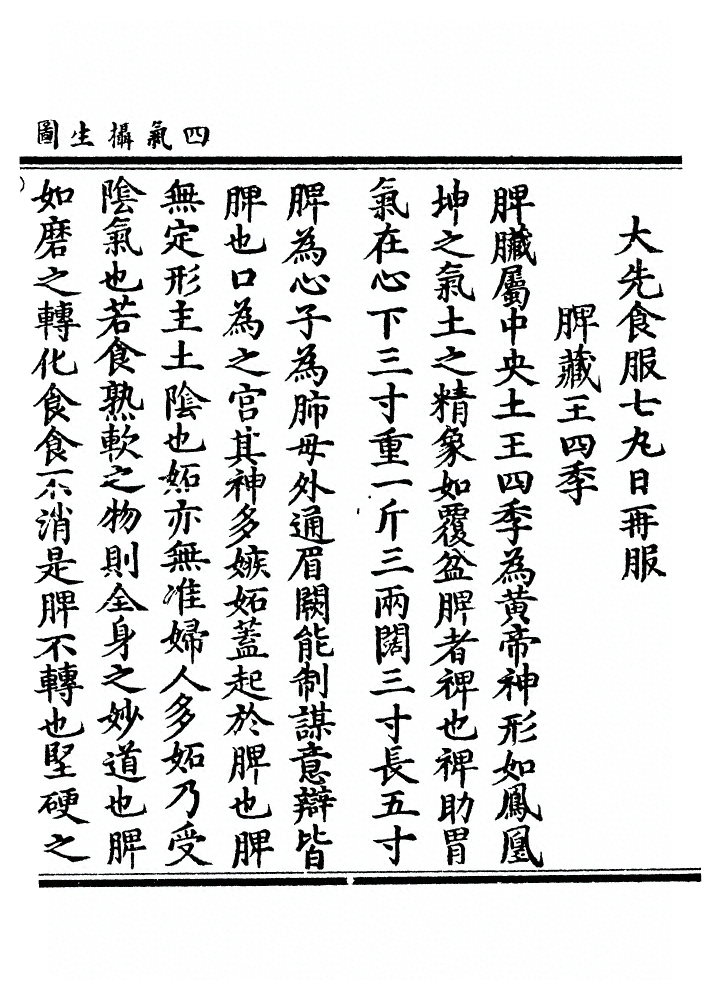 四氣攝生圖
大先食服七丸日再服
脾藏王四季
脾臟屬中央土王四季為黃帝神形如鳳凰
坤之氣土之精象如覆盆脾者裨也裨助胃
氣在心下三寸重一斤三兩闊三寸長五寸
脾為心子為肺母外通眉闕能制謀意辯皆
脾也口為之宮其神多嫉妬蓋起於脾也脾
無定形主土陰也妬亦無准婦人多妬乃受
陰氣也若食熟軟之物則全身之妙道也脾
如磨之轉化食食不消是脾不轉也堅硬之